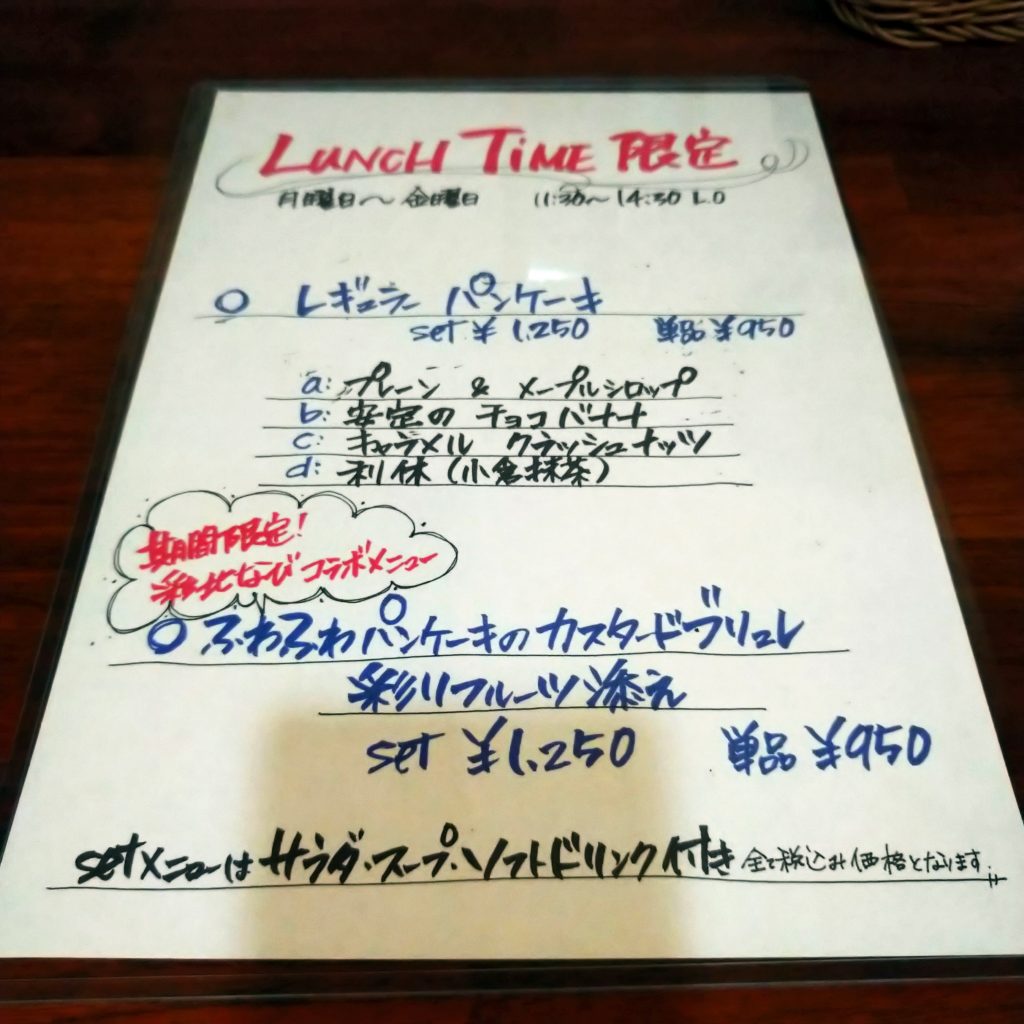 LUNCH TIME 限定
月曜日〜金曜日 11:30〜14:30 L.O
○ レギュラーパンケーキ
set ¥1.250 単品 ¥950
a: プレーン & メープルシロップ
b: 安定の チョコバナナ
c: キャラメル クラッシュナッツ
d: 利休(小倉抹茶)
期間限定!
コラボメニュー
○ ふわふわパンケーキのカスタードブリュレ
彩りフルーツ添え
set ¥1.250 単品 ¥950
setメニューは サラダ・スープ・ソフトドリンク付き 全て税込み価格となります!!